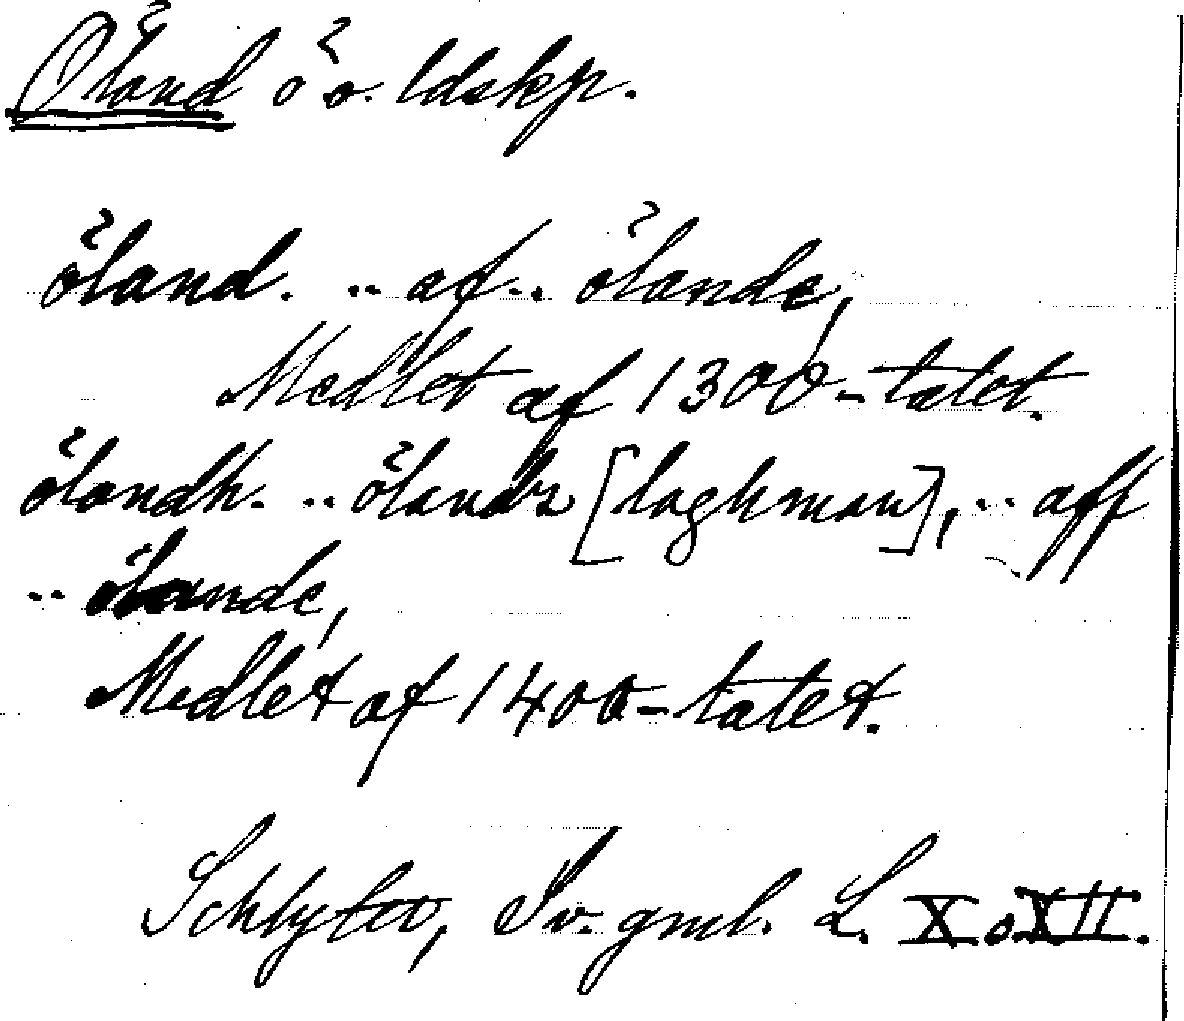 Öland ö o. ldskp.
öland. .. af .. ölande,
Medlet af 1300-talet.
ölandh. .. ölands [laghman], .. aff
.. ölande,
Medlet af 1400-talet.
Schlyter, Sv. gml. L. X o XII.